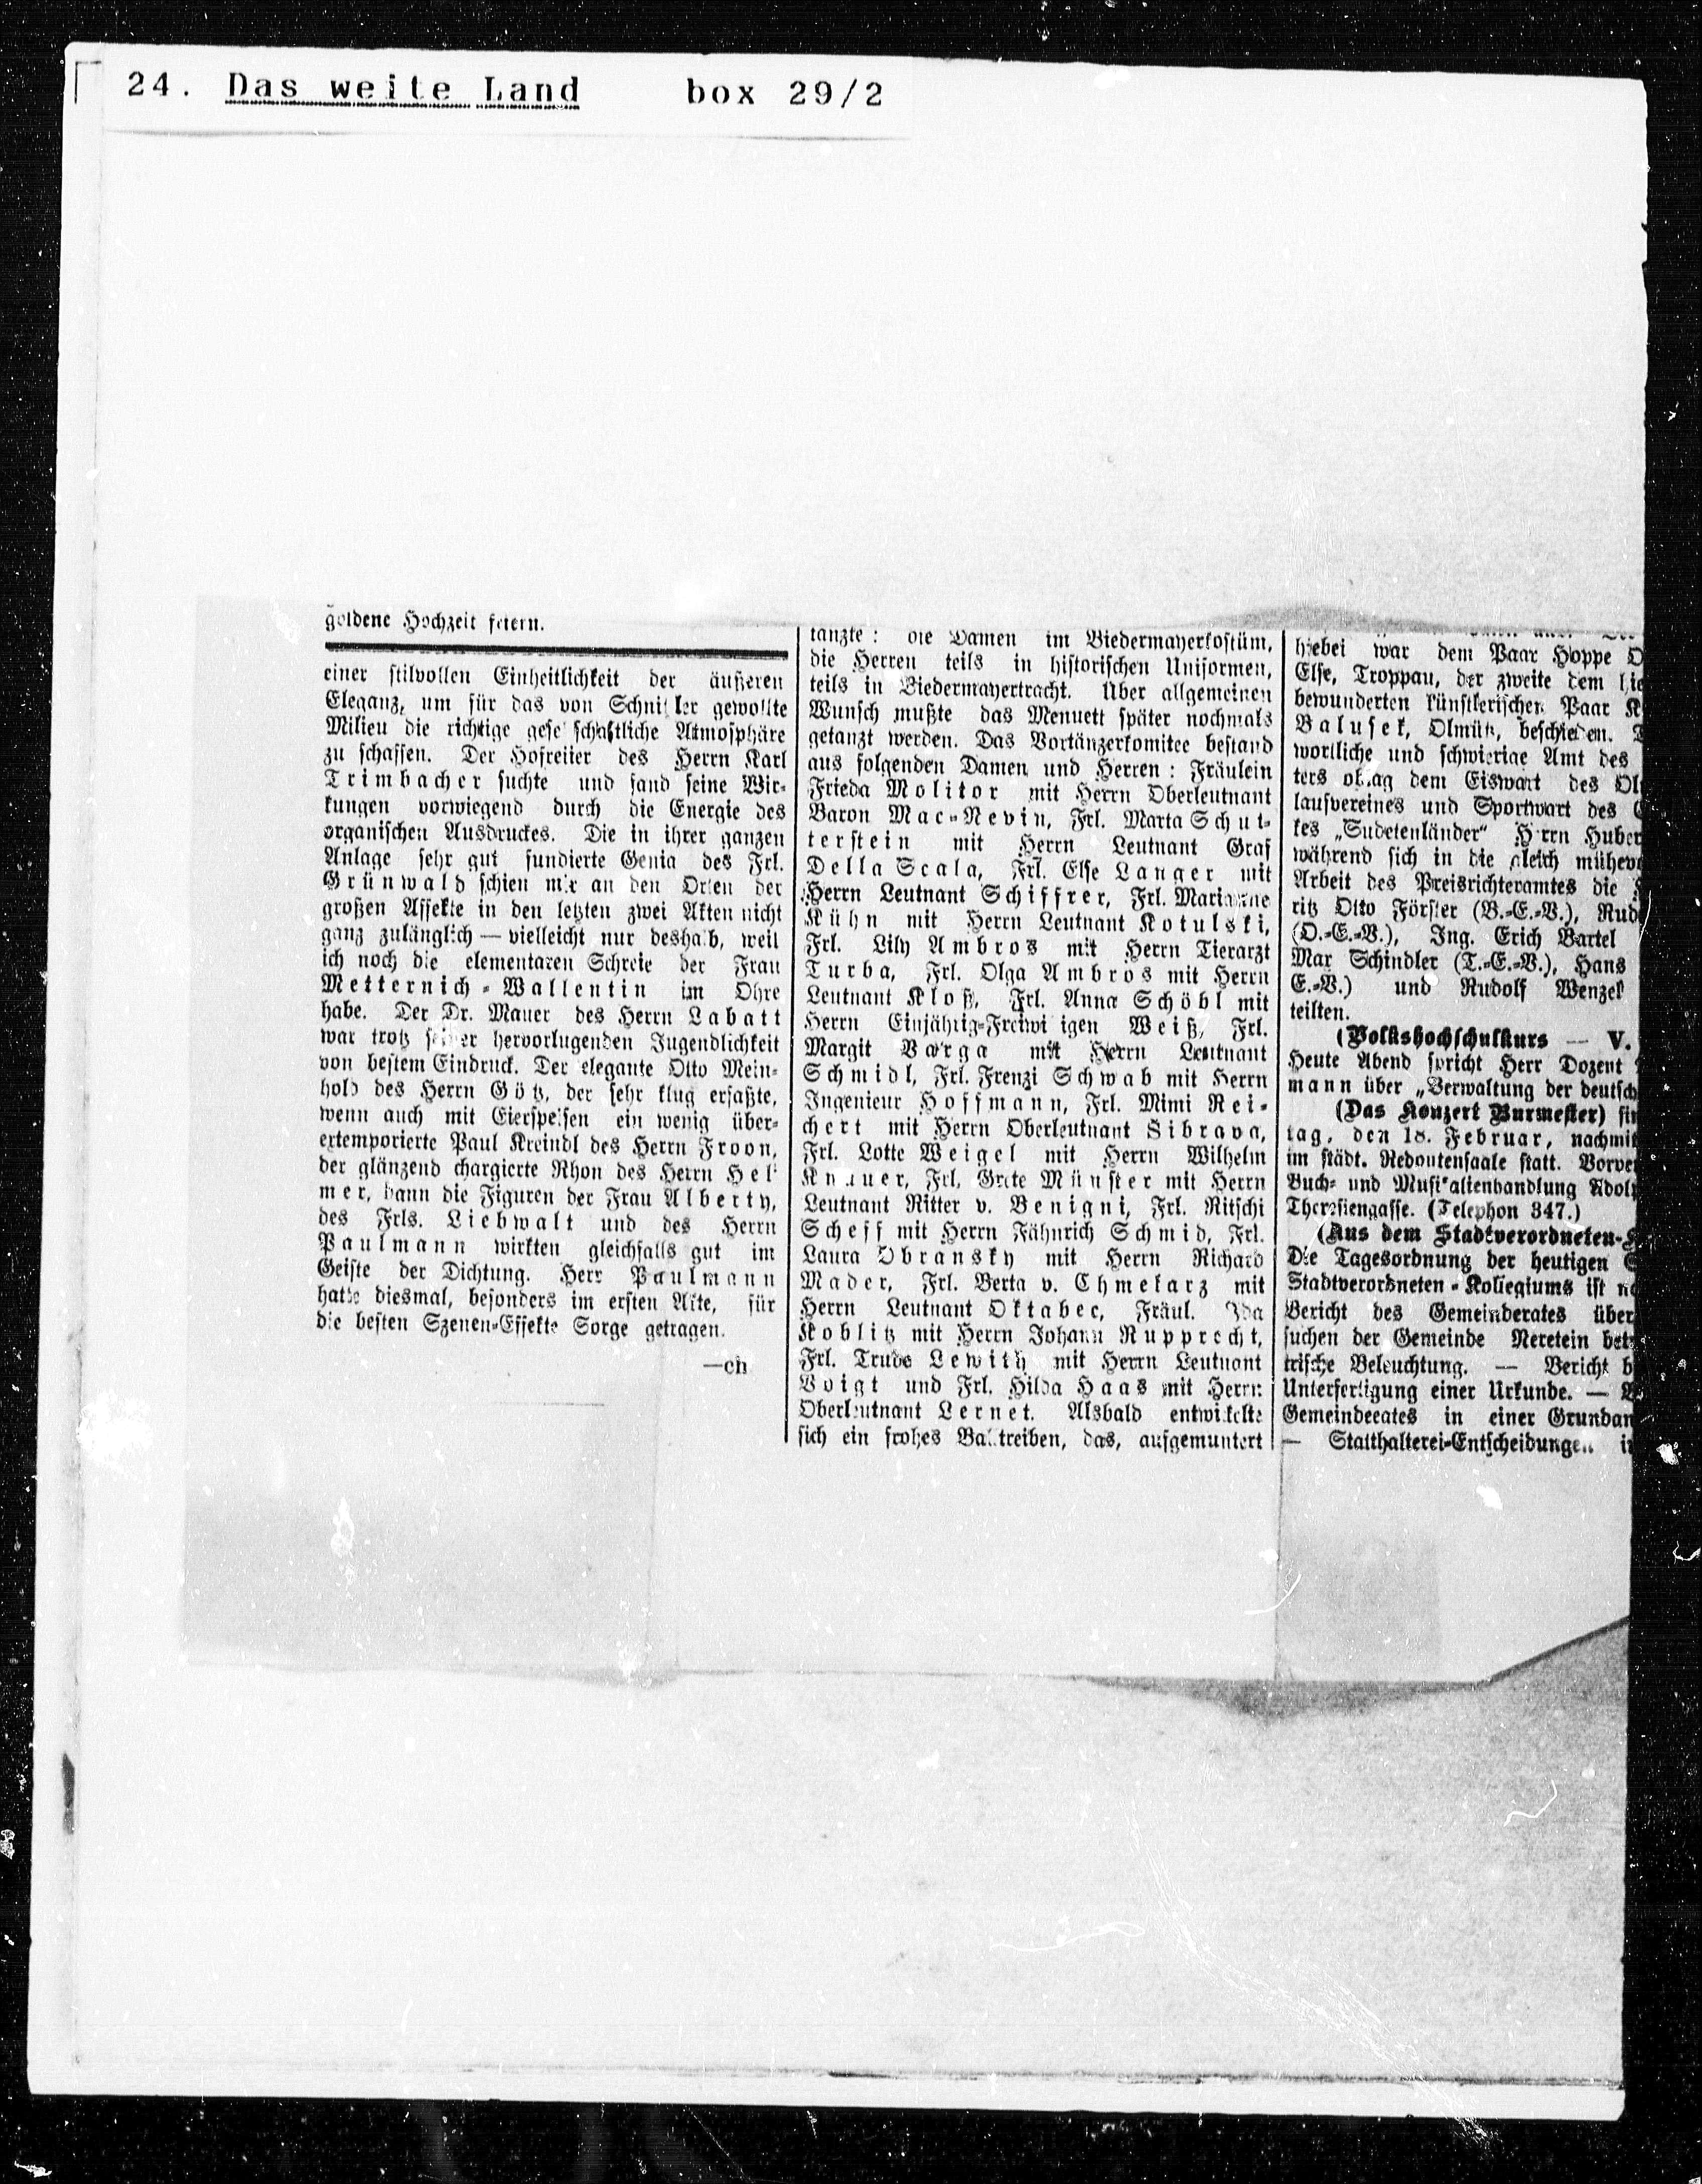 24. Das weite Land box 29/2
goldene Hochzeit feiern.
einer stilvollen Einheitlichkeit der äußeren
Eleganz, um für das von Schnitzler gewollte
Milieu die richtige gesellschaftliche Atmosphäre
zu schaffen. Der Hofreiter des Herrn Karl
Trimbacher suchte und fand seine Wir-
kungen vorwiegend durch die Energie des
organischen Ausdruckes. Die in ihrer ganzen
Anlage sehr gut fundierte Genia des Frl.
Grünwald schien mir an den Orten der
großen Affekte in den letzten zwei Akten nicht
ganz zulänglich — vielleicht nur deshalb, weil
ich noch die elementaren Schreie der Frau
Metternich-Wallentin im Ohre
habe. Der Dr. Mauer des Herrn Labatt
war trotz seiner hervorlugenden Jugendlichkeit
von bestem Eindruck. Der elegante Otto Mein-
hold des Herrn Götz, der sehr klug erfaßte,
wenn auch mit Eierspeisen ein wenig über-
extemporierte Paul Kreindl des Herrn Froon,
der glänzend chargierte Rhon des Herrn Hel-
mer, dann die Figuren der Frau Alberty,
des Frls. Liebwalt und des Herrn
Paulmann wirkten gleichfalls gut im
Geiste der Dichtung. Herr Paulmann
hatte diesmal, besonders im ersten Akte, für
die besten Szenen-Effekte Sorge getragen.
—ch
tanzte: die Damen im Biedermayerkostüm,
die Herren teils in historischen Uniformen,
teils in Biedermayertracht. Über allgemeinen
Wunsch mußte das Menuett später nochmals
getanzt werden. Das Vortänzerkomitee bestand
aus folgenden Damen und Herren: Fräulein
Frieda Molitor mit Herrn Oberleutnant
Baron Mac-Nevin, Frl. Marta Schut-
terstein mit Herrn Leutnant Graf
Della Scala, Frl. Else Langer mit
Herrn Leutnant Schiffrer, Frl. Marianne
Kühn mit Herrn Leutnant Kotulski,
Frl. Lily Ambros mit Herrn Tierarzt
Turba, Frl. Olga Ambros mit Herrn
Leutnant Kloß, Frl. Anna Schöbl mit
Herrn Einjährig-Freiwilligen Weiß, Frl.
Margit Varga mit Herrn Leutnant
Schmidl, Frl. Frenzi Schwab mit Herrn
Ingenieur Hoffmann, Frl. Mimi Rei-
chert mit Herrn Oberleutnant Sibrava,
Frl. Lotte Weigel mit Herrn Wilhelm
Knauer, Frl. Grete Münster mit Herrn
Leutnant Ritter v. Benigni, Frl. Ritschi
Scheff mit Herrn Fähnrich Schmid, Frl.
Laura Obransky mit Herrn Richard
Mader, Frl. Berta v. Chmelarz mit
Herrn Leutnant Oktabec, Fräul. Ida
Koblitz mit Herrn Johann Rupprecht,
Frl. Trude Lewith mit Herrn Leutnant
Voigt und Frl. Hilda Haas mit Herrn
Oberleutnant Lernet. Alsbald entwickelte
sich ein frohes Balltreiben, das, aufgemuntert
hiebei war dem Paar Hoppe O
Else, Troppau, der zweite dem hie
bewunderten künstlerischen Paar K
Balusek, Olmütz, beschieden.
wortliche und schwierige Amt des
ters oblag dem Eiswart des Ol
laufvereines und Sportwart des
kes „Sudetenländer" Herrn Huber
während sich in die gleich mühevo
Arbeit des Preisrichteramtes die
ritz Otto Förster (B.-E.-V.), Rud
(O.-E.-V.), Ing. Erich Bartel
Max Schindler (T.-E.-V.), Hans
E.-V.) und Rudolf Wenzel
teilten.
(Volkshochschulkurs — V.
Heute Abend spricht Herr Dozent
mann über „Verwaltung der deutsch
(Das Konzert Burmester) fin
tag, den 18. Februar, nachmit
im städt. Redoutensaale statt. Vorver
Buch- und Musikalienhandlung Adol
Theresiengasse. (Telephon 347.)
(Aus dem Stadtverordneten-
Die Tagesordnung der heutigen
Stadtverordneten-Kollegiums ist
Bericht des Gemeinderates über
suchen der Gemeinde Neretein bet
trische Beleuchtung. — Bericht b
Unterfertigung einer Urkunde. —
Gemeinderates in einer Grundan
— Statthalterei-Entscheidungen